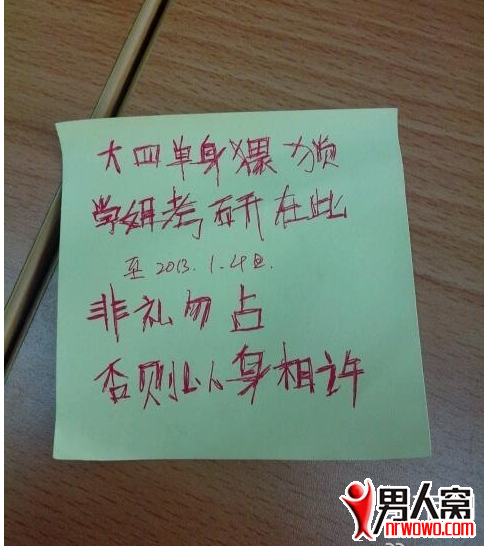 大四单身猥琐
学妍考研在此
至2013.1.4日.
非礼勿占
否则以身相许
男人窝
nrwowo.com